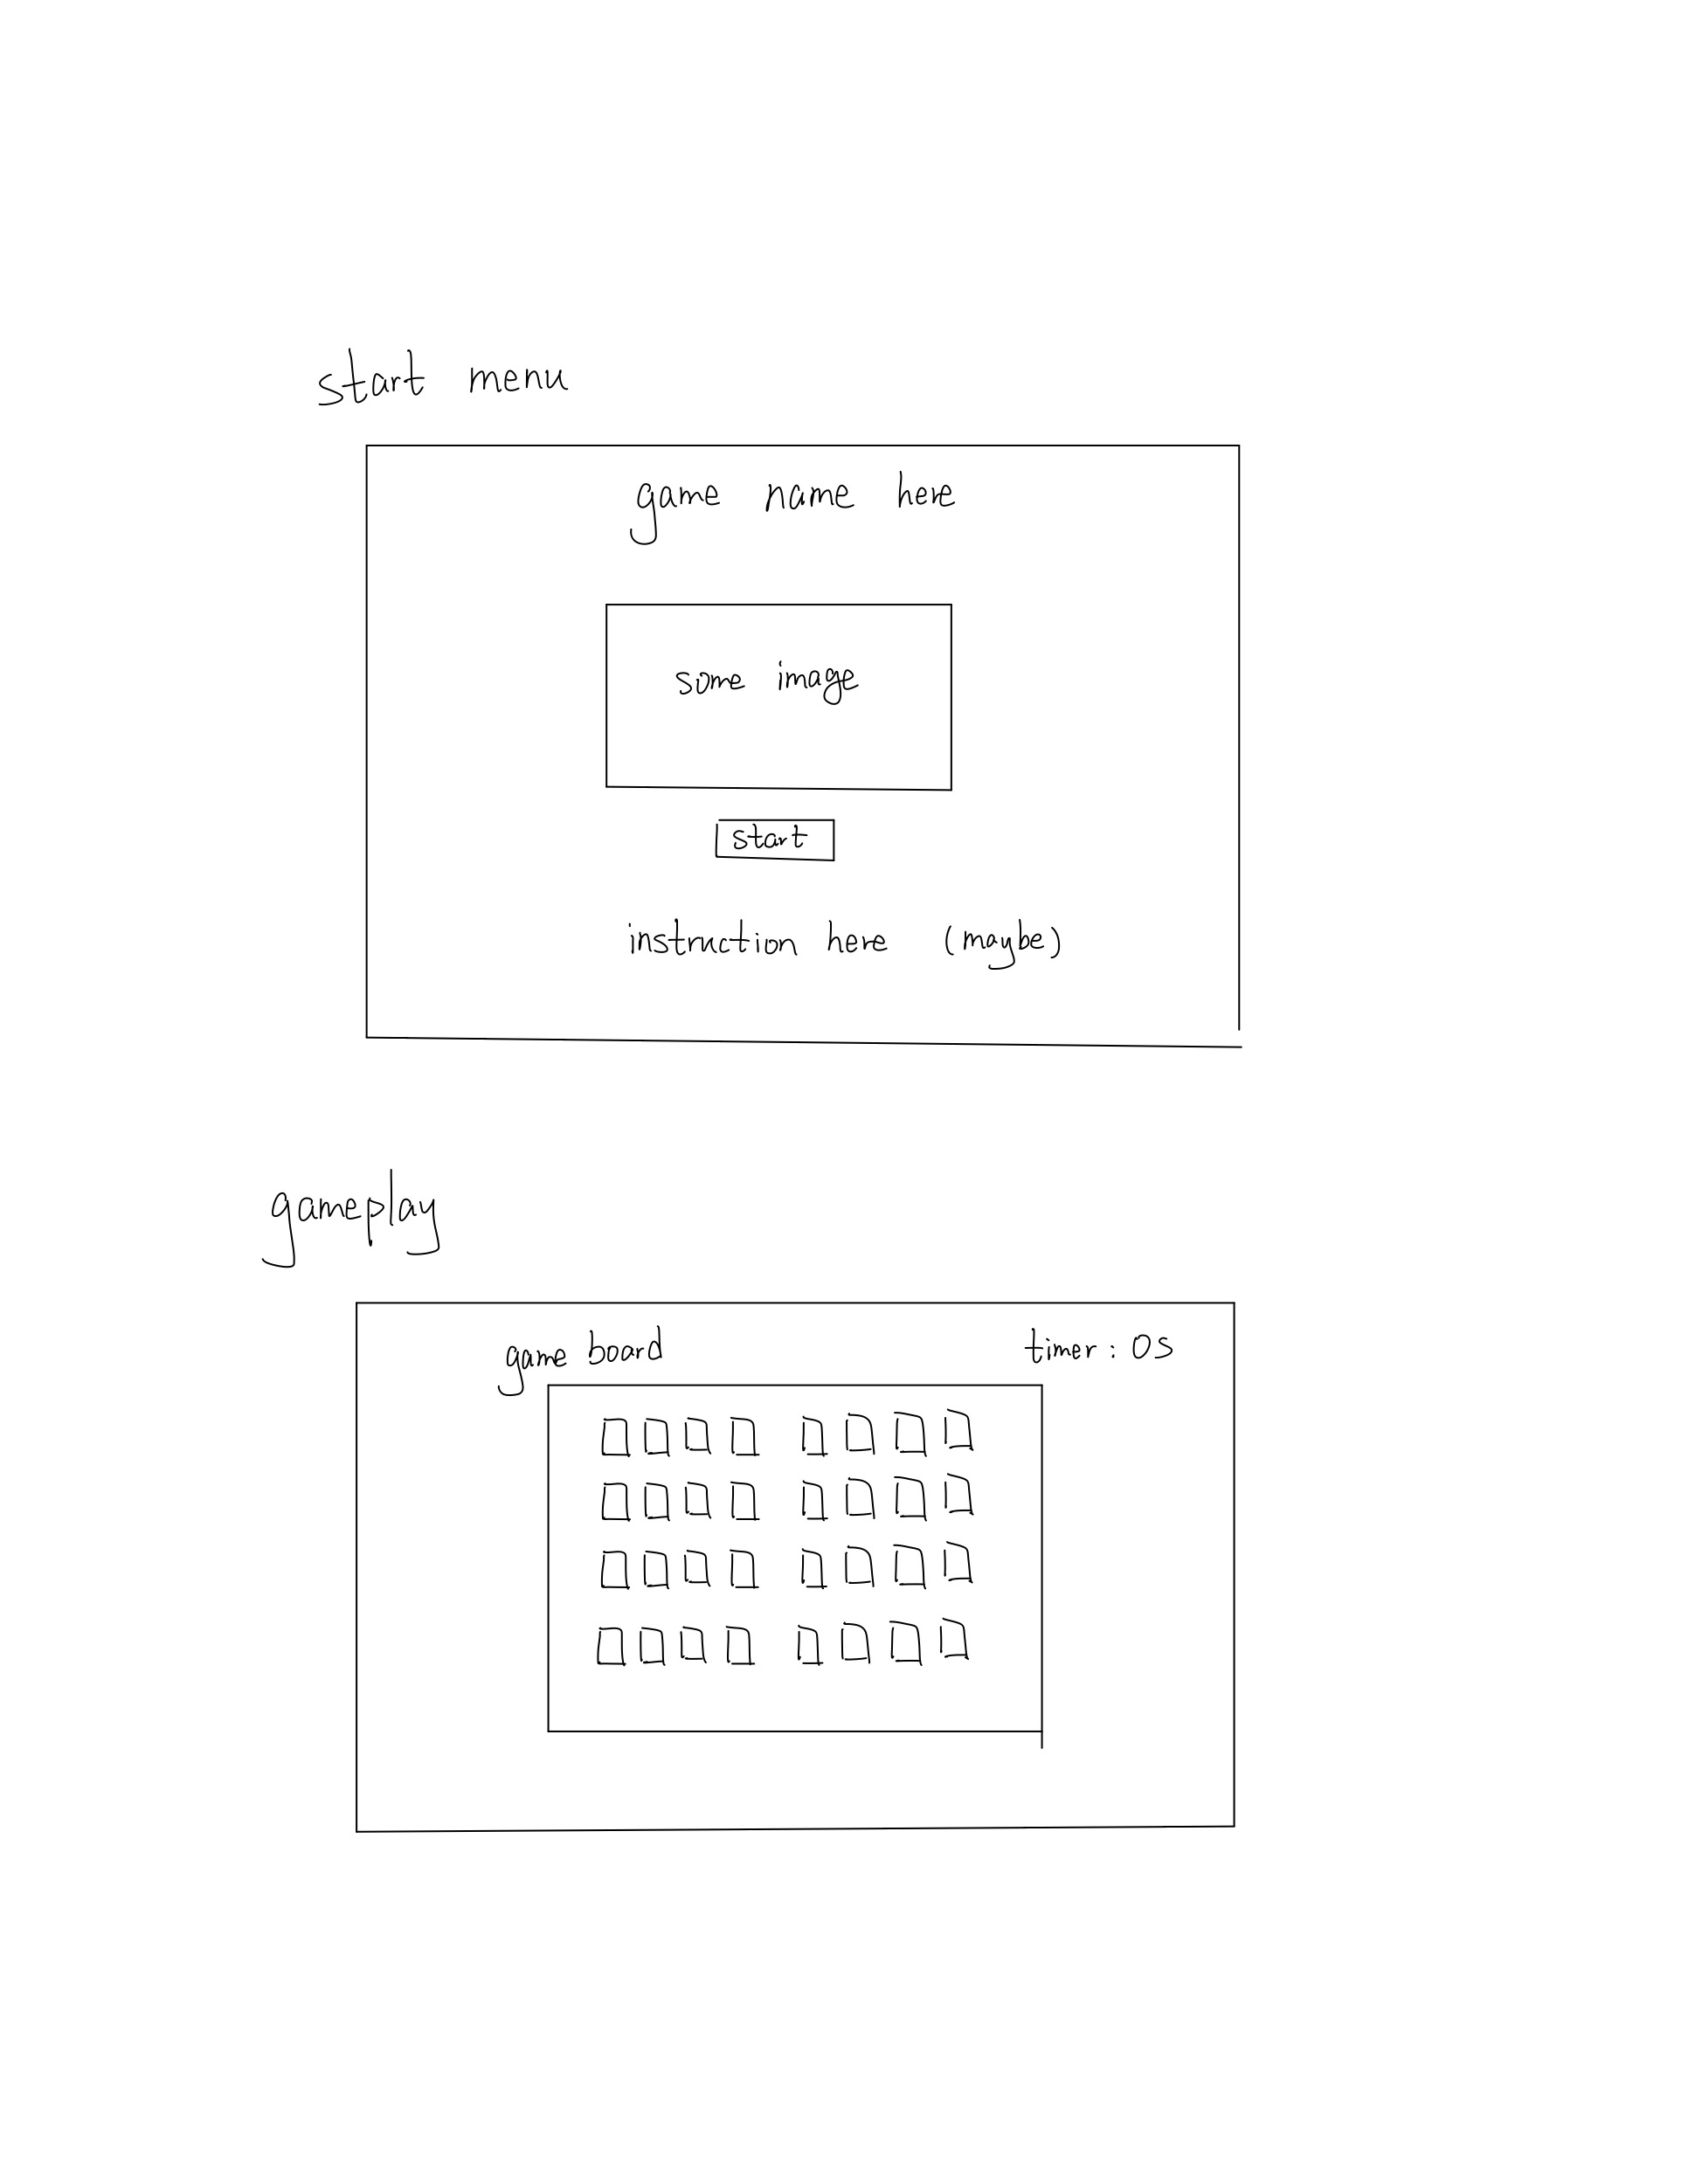 start menu
game name here
some image
start
instruction here (maybe)
gameplay
game board
timer : 0s